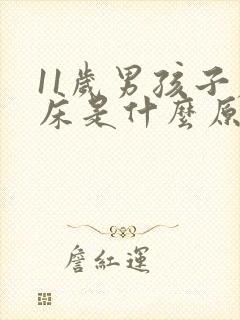 11歲男孩子
床是什麼原
詹紅運